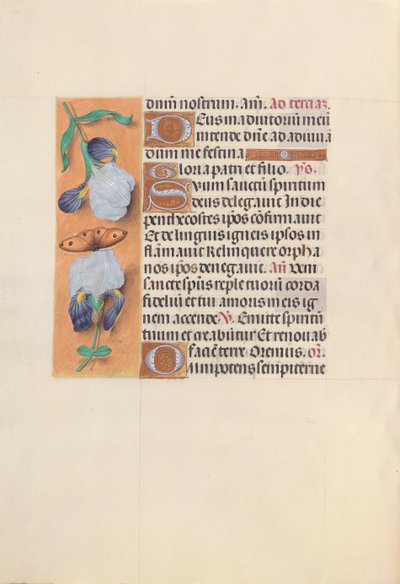 dnm̄ nostrum. Am̄. Ad tercia⁊.
Deus in adiutoriū meū
intende dn̄e ad adiuuā
dum me festina
Gloria patri et filio. ps̄.
Suum sanctū spiritum
deus delegauit In die
penthecostes ip̄os cōfirmauit
Et de linguis igneis ipsos in
flāmauit Relinquere orpha
nos ip̄os denegauit. an̄ Veni
sancte sp̄us reple tuorū corda
fideliū et tui amoris in eis ig
nem accende ℣. Emitte spiritū
tuum et creabūtur Et renouab
facie terre. Oremus. or̄.
Omnipotens sempiterne